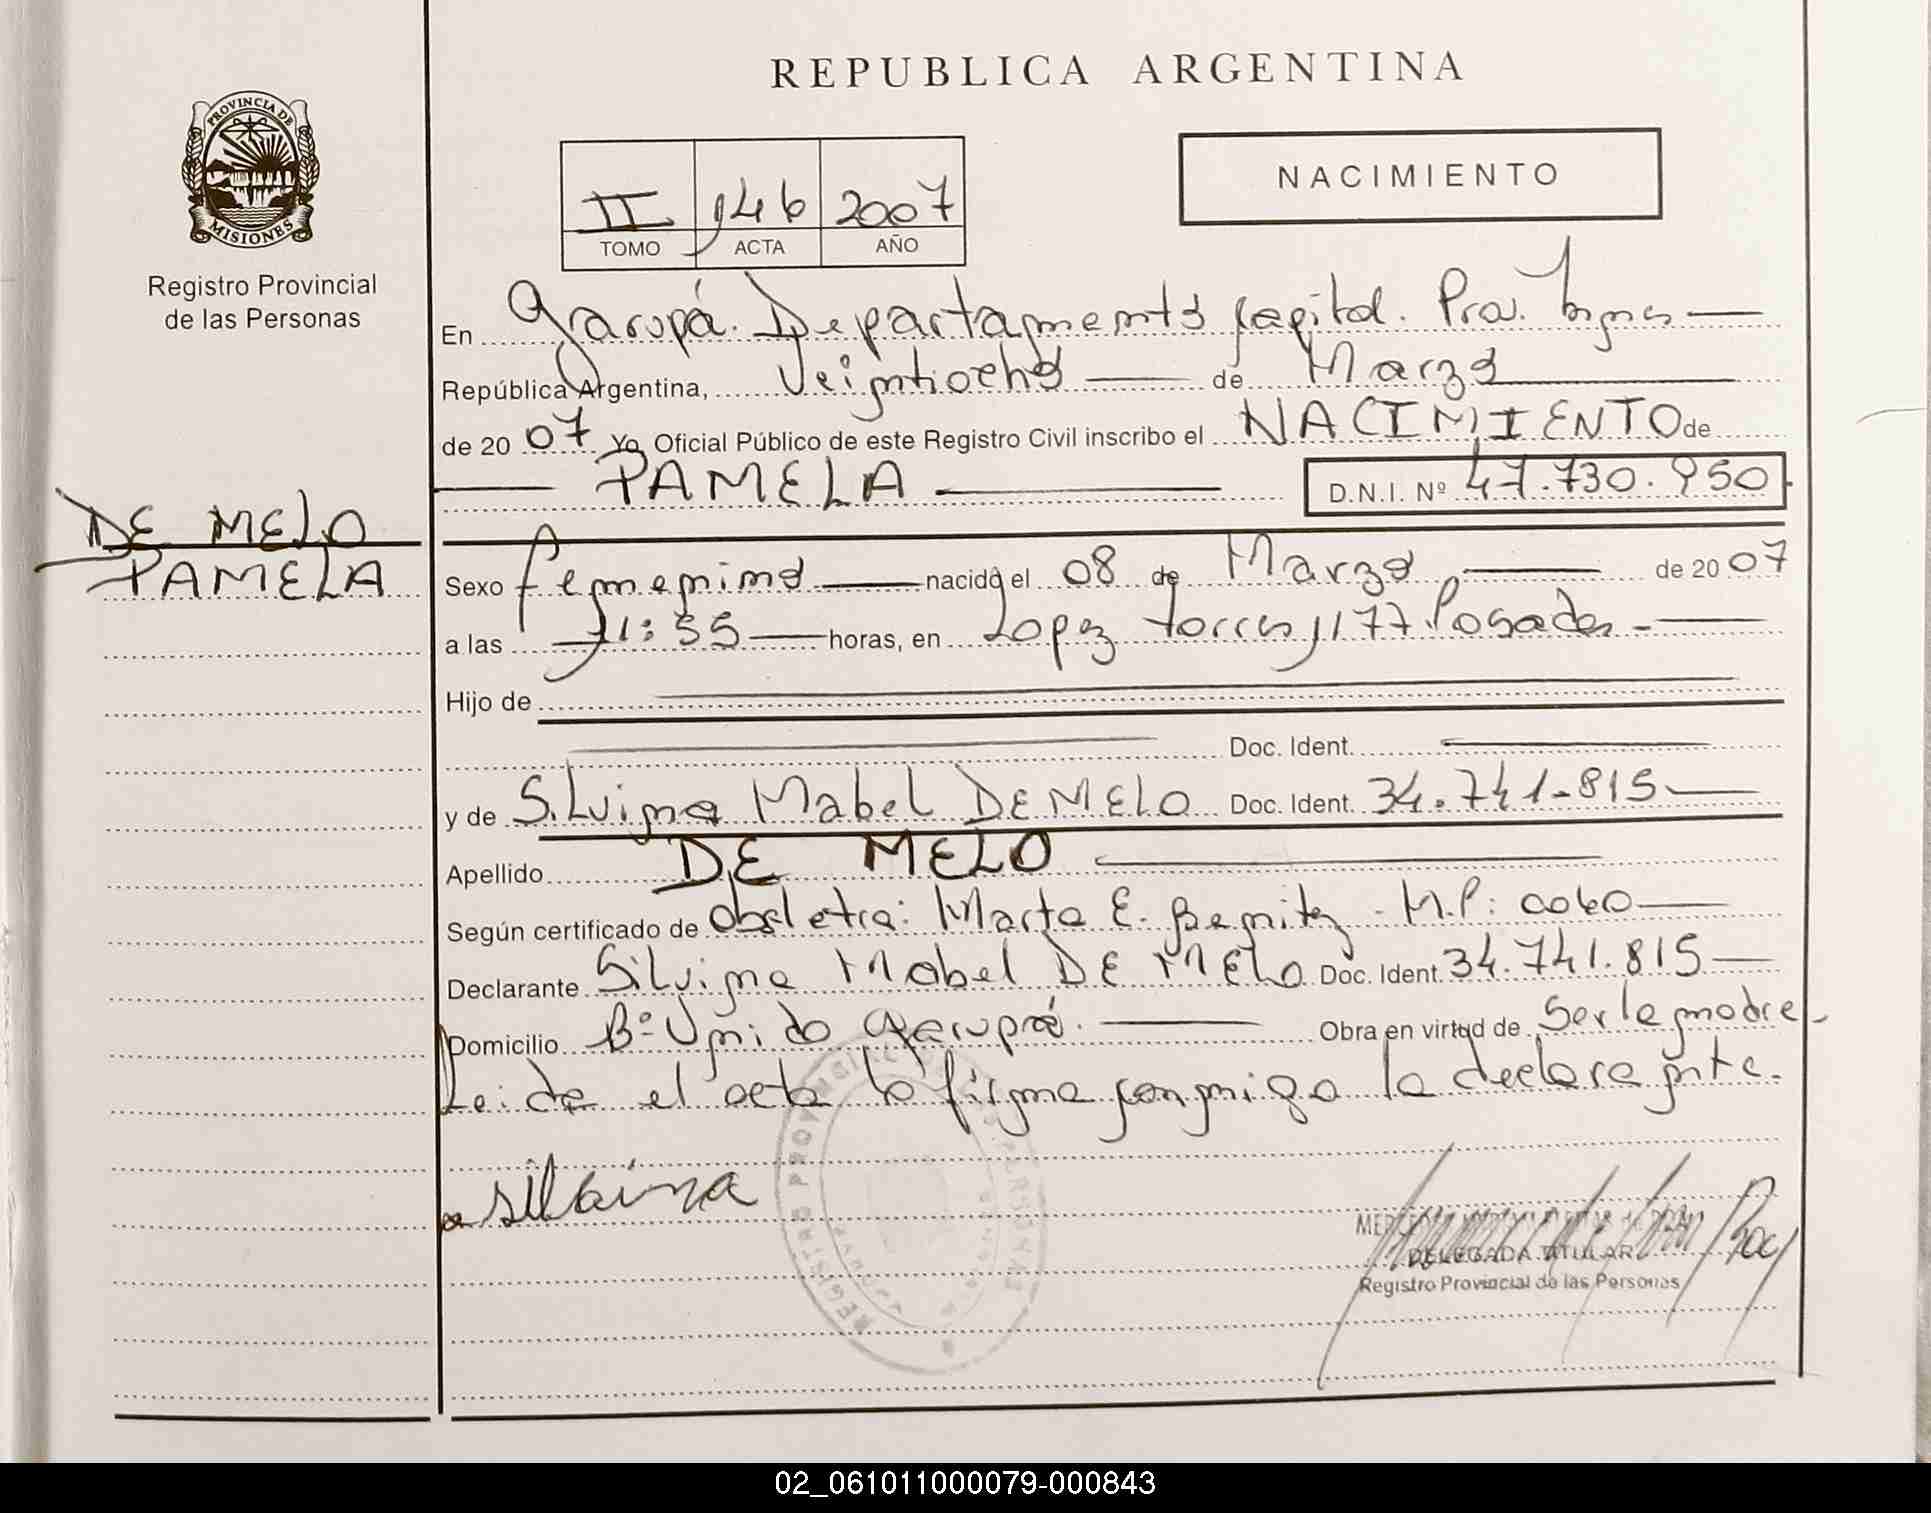 REPUBLICA ARGENTINA
PROVINCIA DE
MISIONES
Registro Provincial
de las Personas
NACIMIENTO
II 146 2007
TOMO ACTA AÑO
En Garupá. Departamento Capital. Prov. Mnes
República Argentina, Veintiocho de Marzo
de 2007 Yo, Oficial Público de este Registro Civil inscribo el NACIMIENTO de
PAMELA D.N.I. Nº 47.730.950
DE MELO
PAMELA
Sexo femenino nacido el 08 de Marzo de 2007
a las 11:55 horas, en Lopez torres 1177 Posadas
Hijo de
Doc. Ident.
y de Silvina Mabel DE MELO Doc. Ident. 34.741.815
Apellido DE MELO
Según certificado de Obstetra: Marta E. Benitez - M.P: 0060
Declarante Silvina Mabel DE MELO Doc. Ident. 34.741.815
Domicilio Bº Unido Garupá. Obra en virtud de Ser la madre
Leida el acta la firma conmigo la declarante.
silvina
REGISTRO PROVINCIAL DE LAS PERSONAS
DELEGADA TITULAR
Registro Provincial de las Personas
02_061011000079-000843